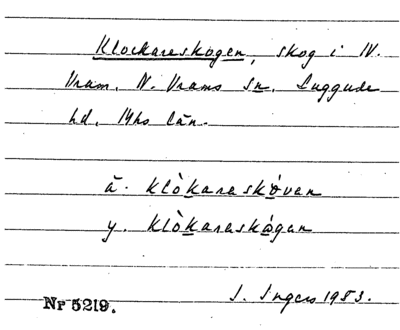 Klockareskogen, skog i N.
Vram, N. Vrams sn, Luggude
hd, Mhs län.
ä. klòkaraskòvan
y. klòkaraskògan
Nr 5219. I. Ingers 1953.